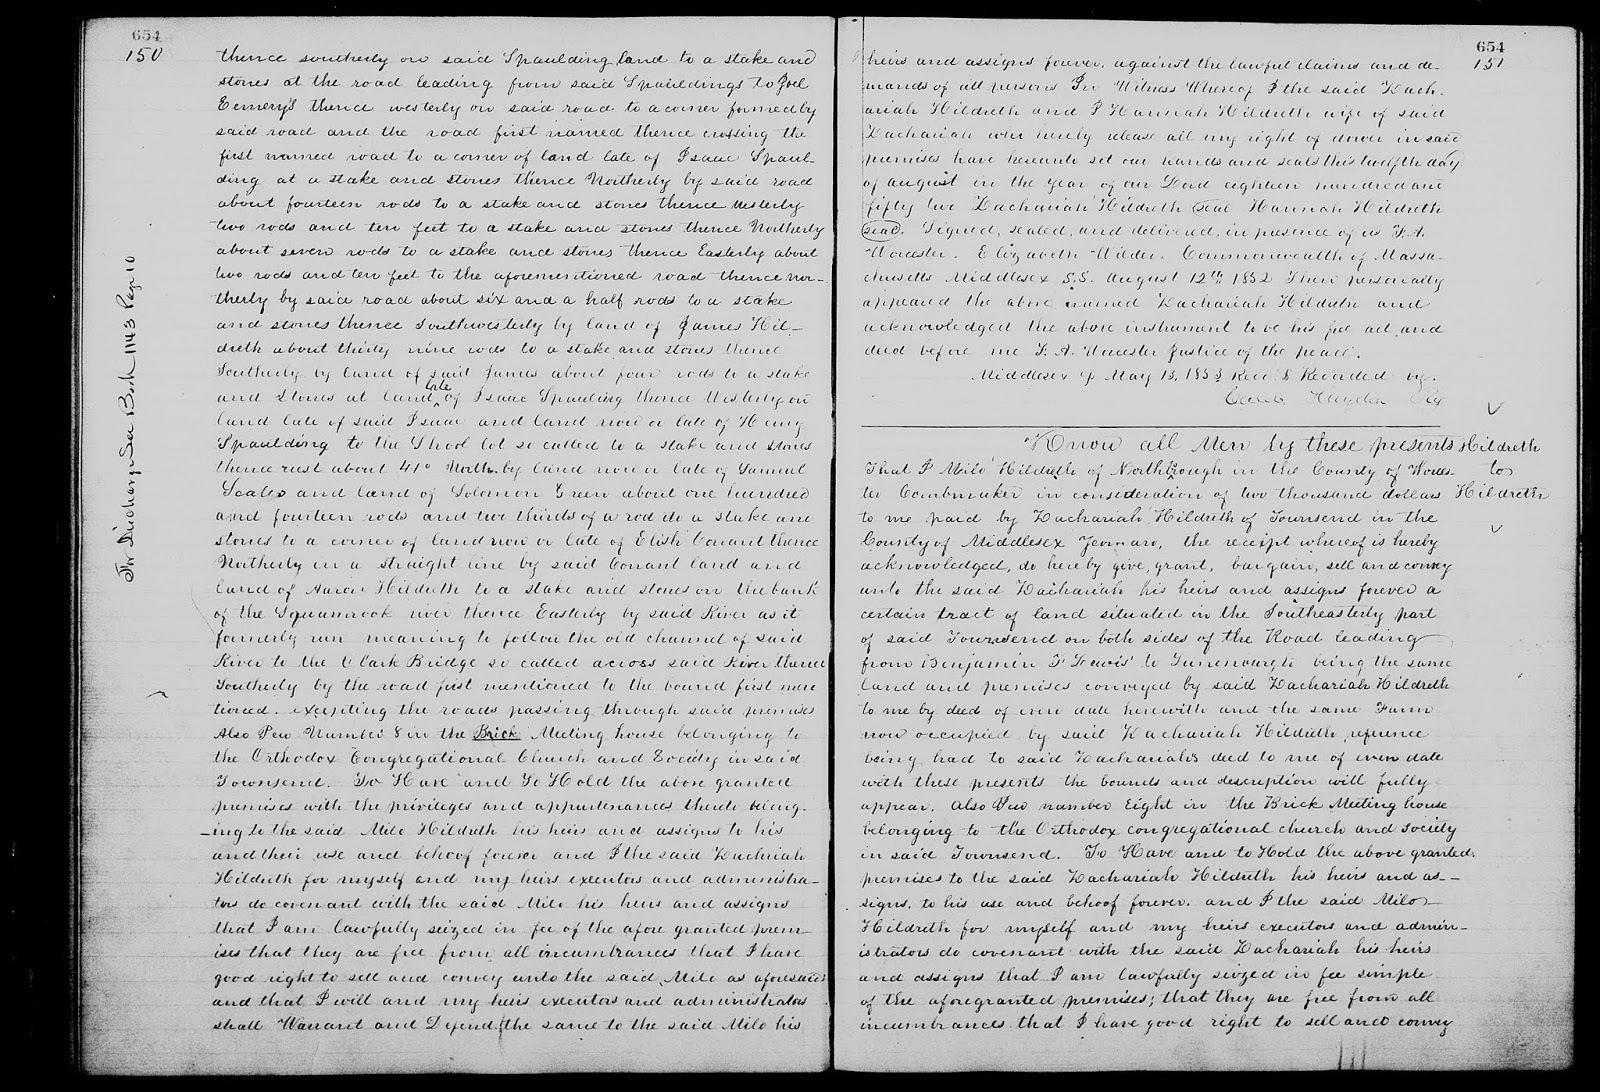 654
150
thence southerly on said Spaulding land to a stake and
stones at the road leading from said Spauldings to Joel
Emery's thence westerly on said road to a corner formed by
said road and the road first named thence crossing the
first named road to a corner of land late of Isaac Spaul-
ding at a stake and stones thence Northerly by said road
about fourteen rods to a stake and stones thence Westerly
two rods and ten feet to a stake and stones thence Northerly
about seven rods to a stake and stones thence Easterly about
two rods and ten feet to the aforementioned road thence nor-
therly by said road about six and a half rods to a stake
and stones thence Southwesterly by land of James Hil-
dreth about thirty nine rods to a stake and stones thence
Southerly by land of said James about four rods to a stake
and stones at land late of Isaac Spaulding thence Westerly on
land late of said Isaac and land now or late of Henry
Spaulding to the School lot so called to a stake and stones
thence west about 41° North by land now or late of Samuel
Scales and land of Solomon Green about one hundred
and fourteen rods and two thirds of a rod to a stake and
stones to a corner of land now or late of Elish Conant thence
Northerly in a straight line by said Conant land and
land of Aaron Hildreth to a stake and stones on the bank
of the Squannook river thence Easterly by said River as it
formerly run meaning to follow the old channel of said
River to the Clark Bridge so called across said River thence
Southerly by the road first mentioned to the bound first men
tioned. excepting the roads passing through said premises
Also Pew Number 8 in the Brick Meeting house belonging to
the Orthodox Congregational Church and Society in said
Townsend. To Have and To Hold the above granted
premises with the privileges and appurtenances thereto belong-
-ing to the said Milo Hildreth his heirs and assigns to his
and their use and behoof forever and I the said Zachriah
Hildreth for myself and my heirs executors and administra-
tors do covenant with the said Milo his heirs and assigns
that I am lawfully seized in fee of the afore granted prem
ises that they are free from all incumbrances that I have
good right to sell and convey unto the said Milo as aforesaid
and that I will and my heirs executors and administrators
shall Warrant and Defend the same to the said Milo his
For Discharge See Book 1143 Page 10
654
151
heirs and assigns forever. against the lawful claims and de-
mands of all persons In Witness Whereof I the said Zach-
ariah Hildreth and I Hannah Hildreth wife of said
Zachariah who hereby release all my right of dower in said
premises have hereunto set our hands and seals this twelfth day
of august in the year of our Lord eighteen hundred and
fifty two Zachariah Hildreth seal Hannah Hildreth
seal. Signed, sealed, and delivered, in presence of us F. A.
Worcester. Elizabeth Wilder. Commonwealth of Massa-
chusetts Middlesex S.S. August 12th 1852 Then personally
appeared the above named Zachariah Hildreth and
acknowledged the above instrument to be his free act and
deed before me F. A. Worcester Justice of the peace.
Middlesex May 13, 1853 Rec'd & Recorded by.
Caleb Hayden Reg
Know all Men by these presents
That I Milo Hildreth of Northborough in the County of Worces-
ter Combmaker in consideration of two thousand dollars
to me paid by Zachariah Hildreth of Townsend in the
County of Middlesex Yeoman, the receipt whereof is hereby
acknowledged, do hereby give, grant, bargain, sell and convey
unto the said Zachariah his heirs and assigns forever a
certain tract of land situated in the Southeasterly part
of said Townsend on both sides of the Road leading
from Benjamin F Lewis' to being the same
land and premises conveyed by said Zachariah Hildreth
to me by deed of even date herewith and the same Farm
now occupied by said Zachariah Hildreth, reference
being had to said Zachariah's deed to me of even date
with these presents the bounds and description will fully
appear. Also Pew number Eight in the Brick Meeting house
belonging to the Orthodox congregational church and Society
in said Townsend. To Have and to Hold the above granted
premises to the said Zachariah Hildreth his heirs and as-
signs, to his use and behoof forever. and I the said Milo
Hildreth for myself and my heirs executors and admin-
istrators do covenant with the said Zachariah his heirs
and assigns that I am lawfully seized in fee simple
of the aforegranted premises; that they are free from all
incumbrances that I have good right to sell and convey
Hildreth
to
Hildreth